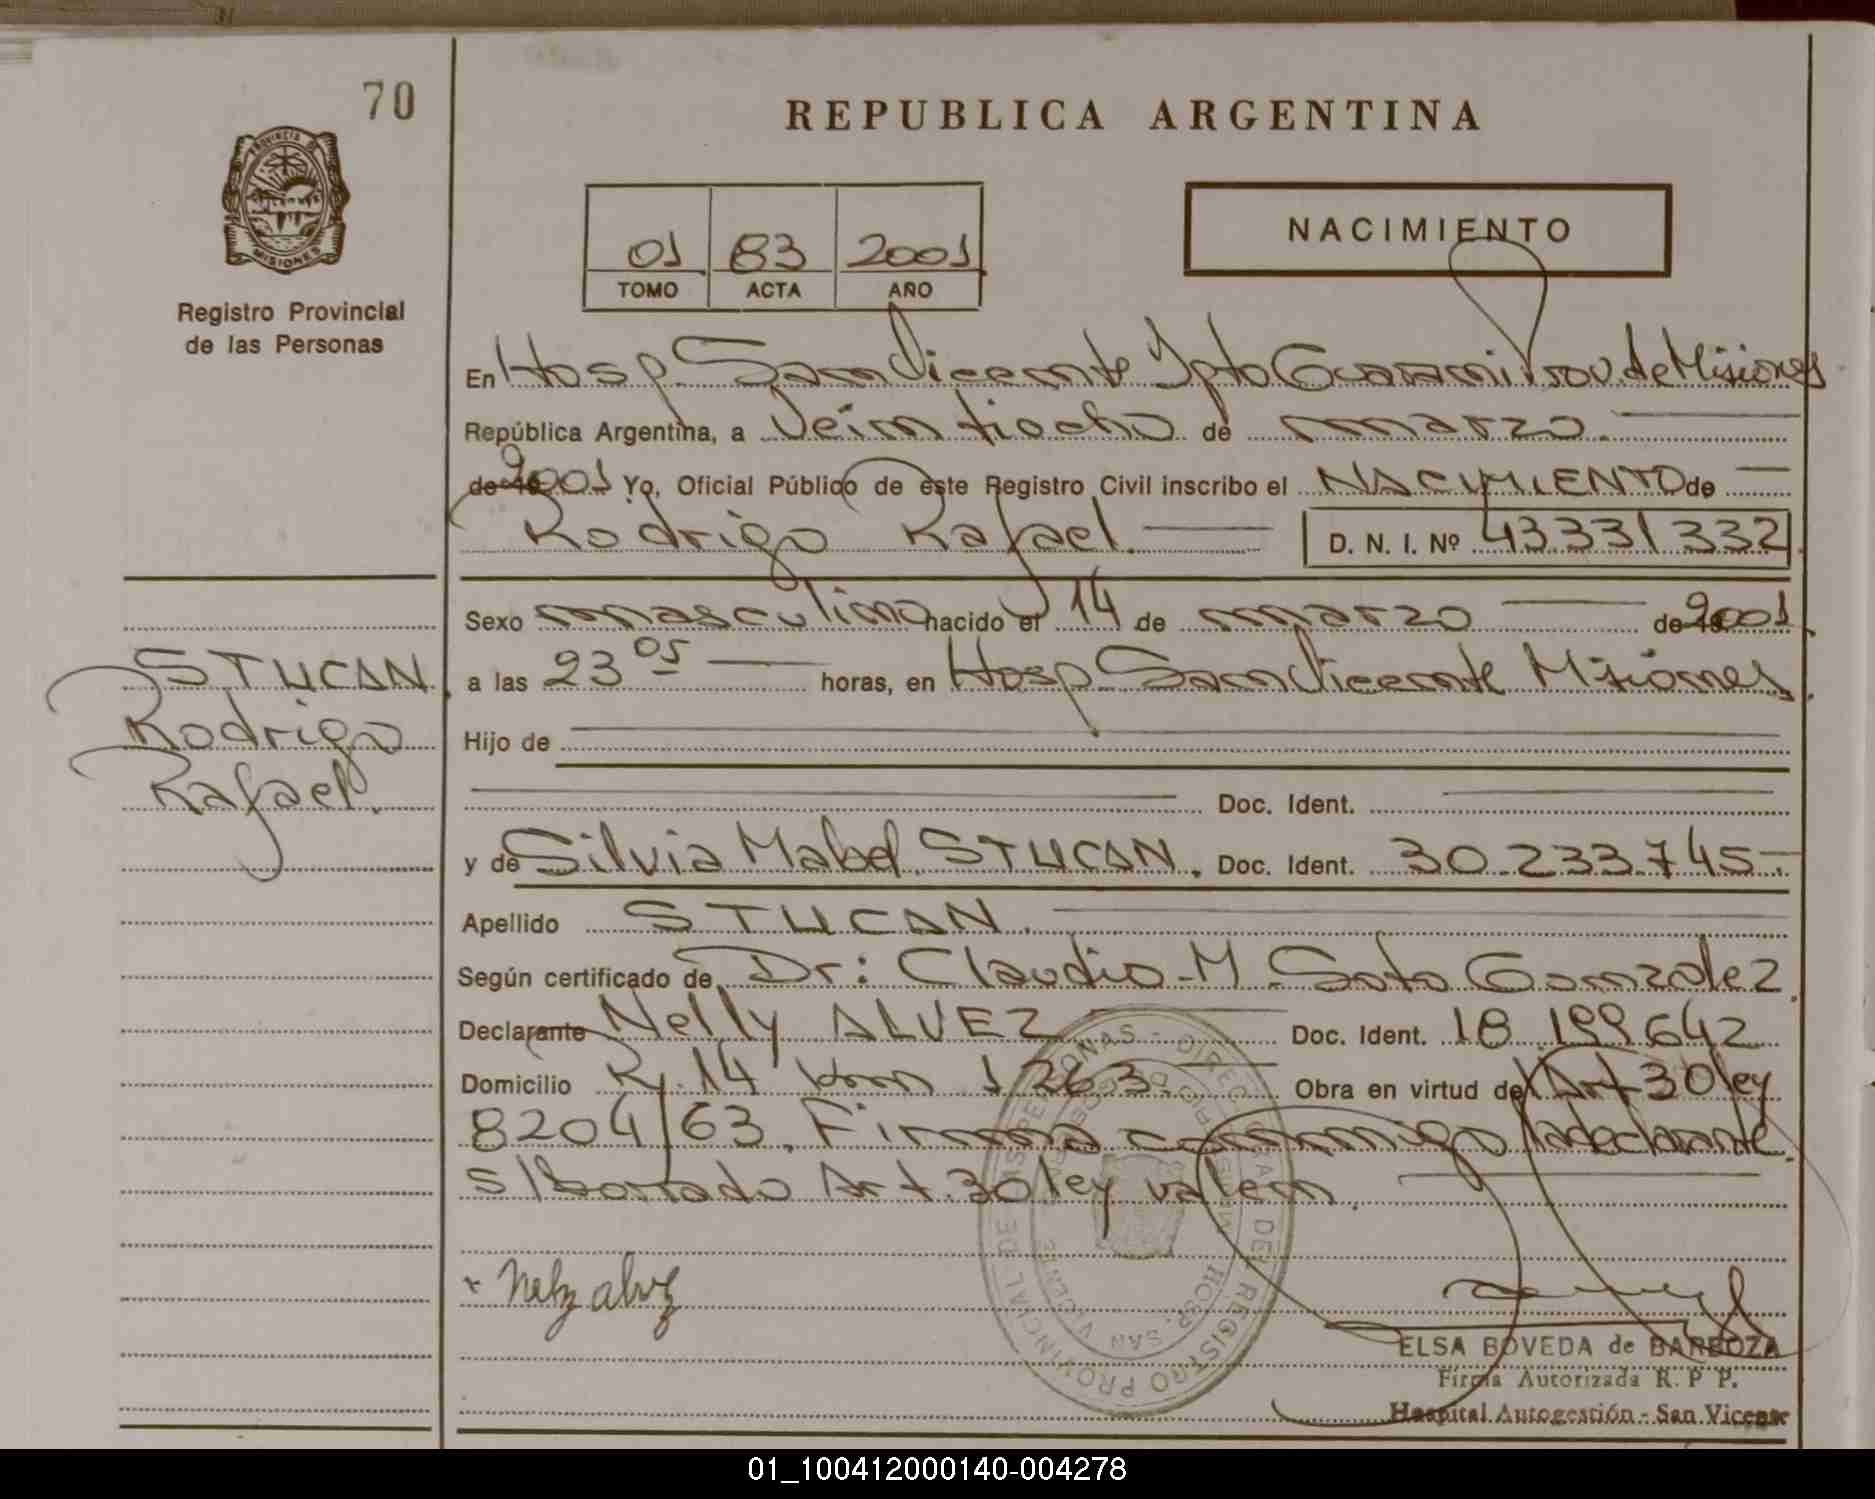 70
REPUBLICA ARGENTINA
PROVINCIA DE
MISIONES
Registro Provincial
de las Personas
NACIMIENTO
01 83 2001
TOMO ACTA AÑO
En Hosp San Vicente Dpto Guarani Prov. de Misiones
República Argentina, a Veintiocho de marzo.
de 19 2001 Yo, Oficial Público de este Registro Civil inscribo el NACIMIENTO de
Rodrigo Rafael. D. N. I. Nº 43331332
Sexo masculino nacido el 14 de marzo de 19 2001
a las 23 05 horas, en Hosp San Vicente Misiones
STUCAN
Rodrigo
Rafael.
Hijo de
Doc. Ident.
y de Silvia Mabel STUCAN. Doc. Ident. 30.233.745-
Apellido STUCAN.
Según certificado de Dr: Claudio M. Soto Gonzalez
Declarante Nelly ALVEZ Doc. Ident. 18.199642
Domicilio R. 14 km 1263. Obra en virtud de Art 30 ley
8204/63. Firma conmigo la declarante.
s/borrado Art. 30 ley valen.
x Nely alvez
ELSA BOVEDA de BARBOZA
Firma Autorizada R. P P.
Hospital Autogestión - San Vicente
REGISTRO PROVINCIAL DE LAS PERSONAS - DIREC
HOSP. SAN VICENTE
01_100412000140-004278